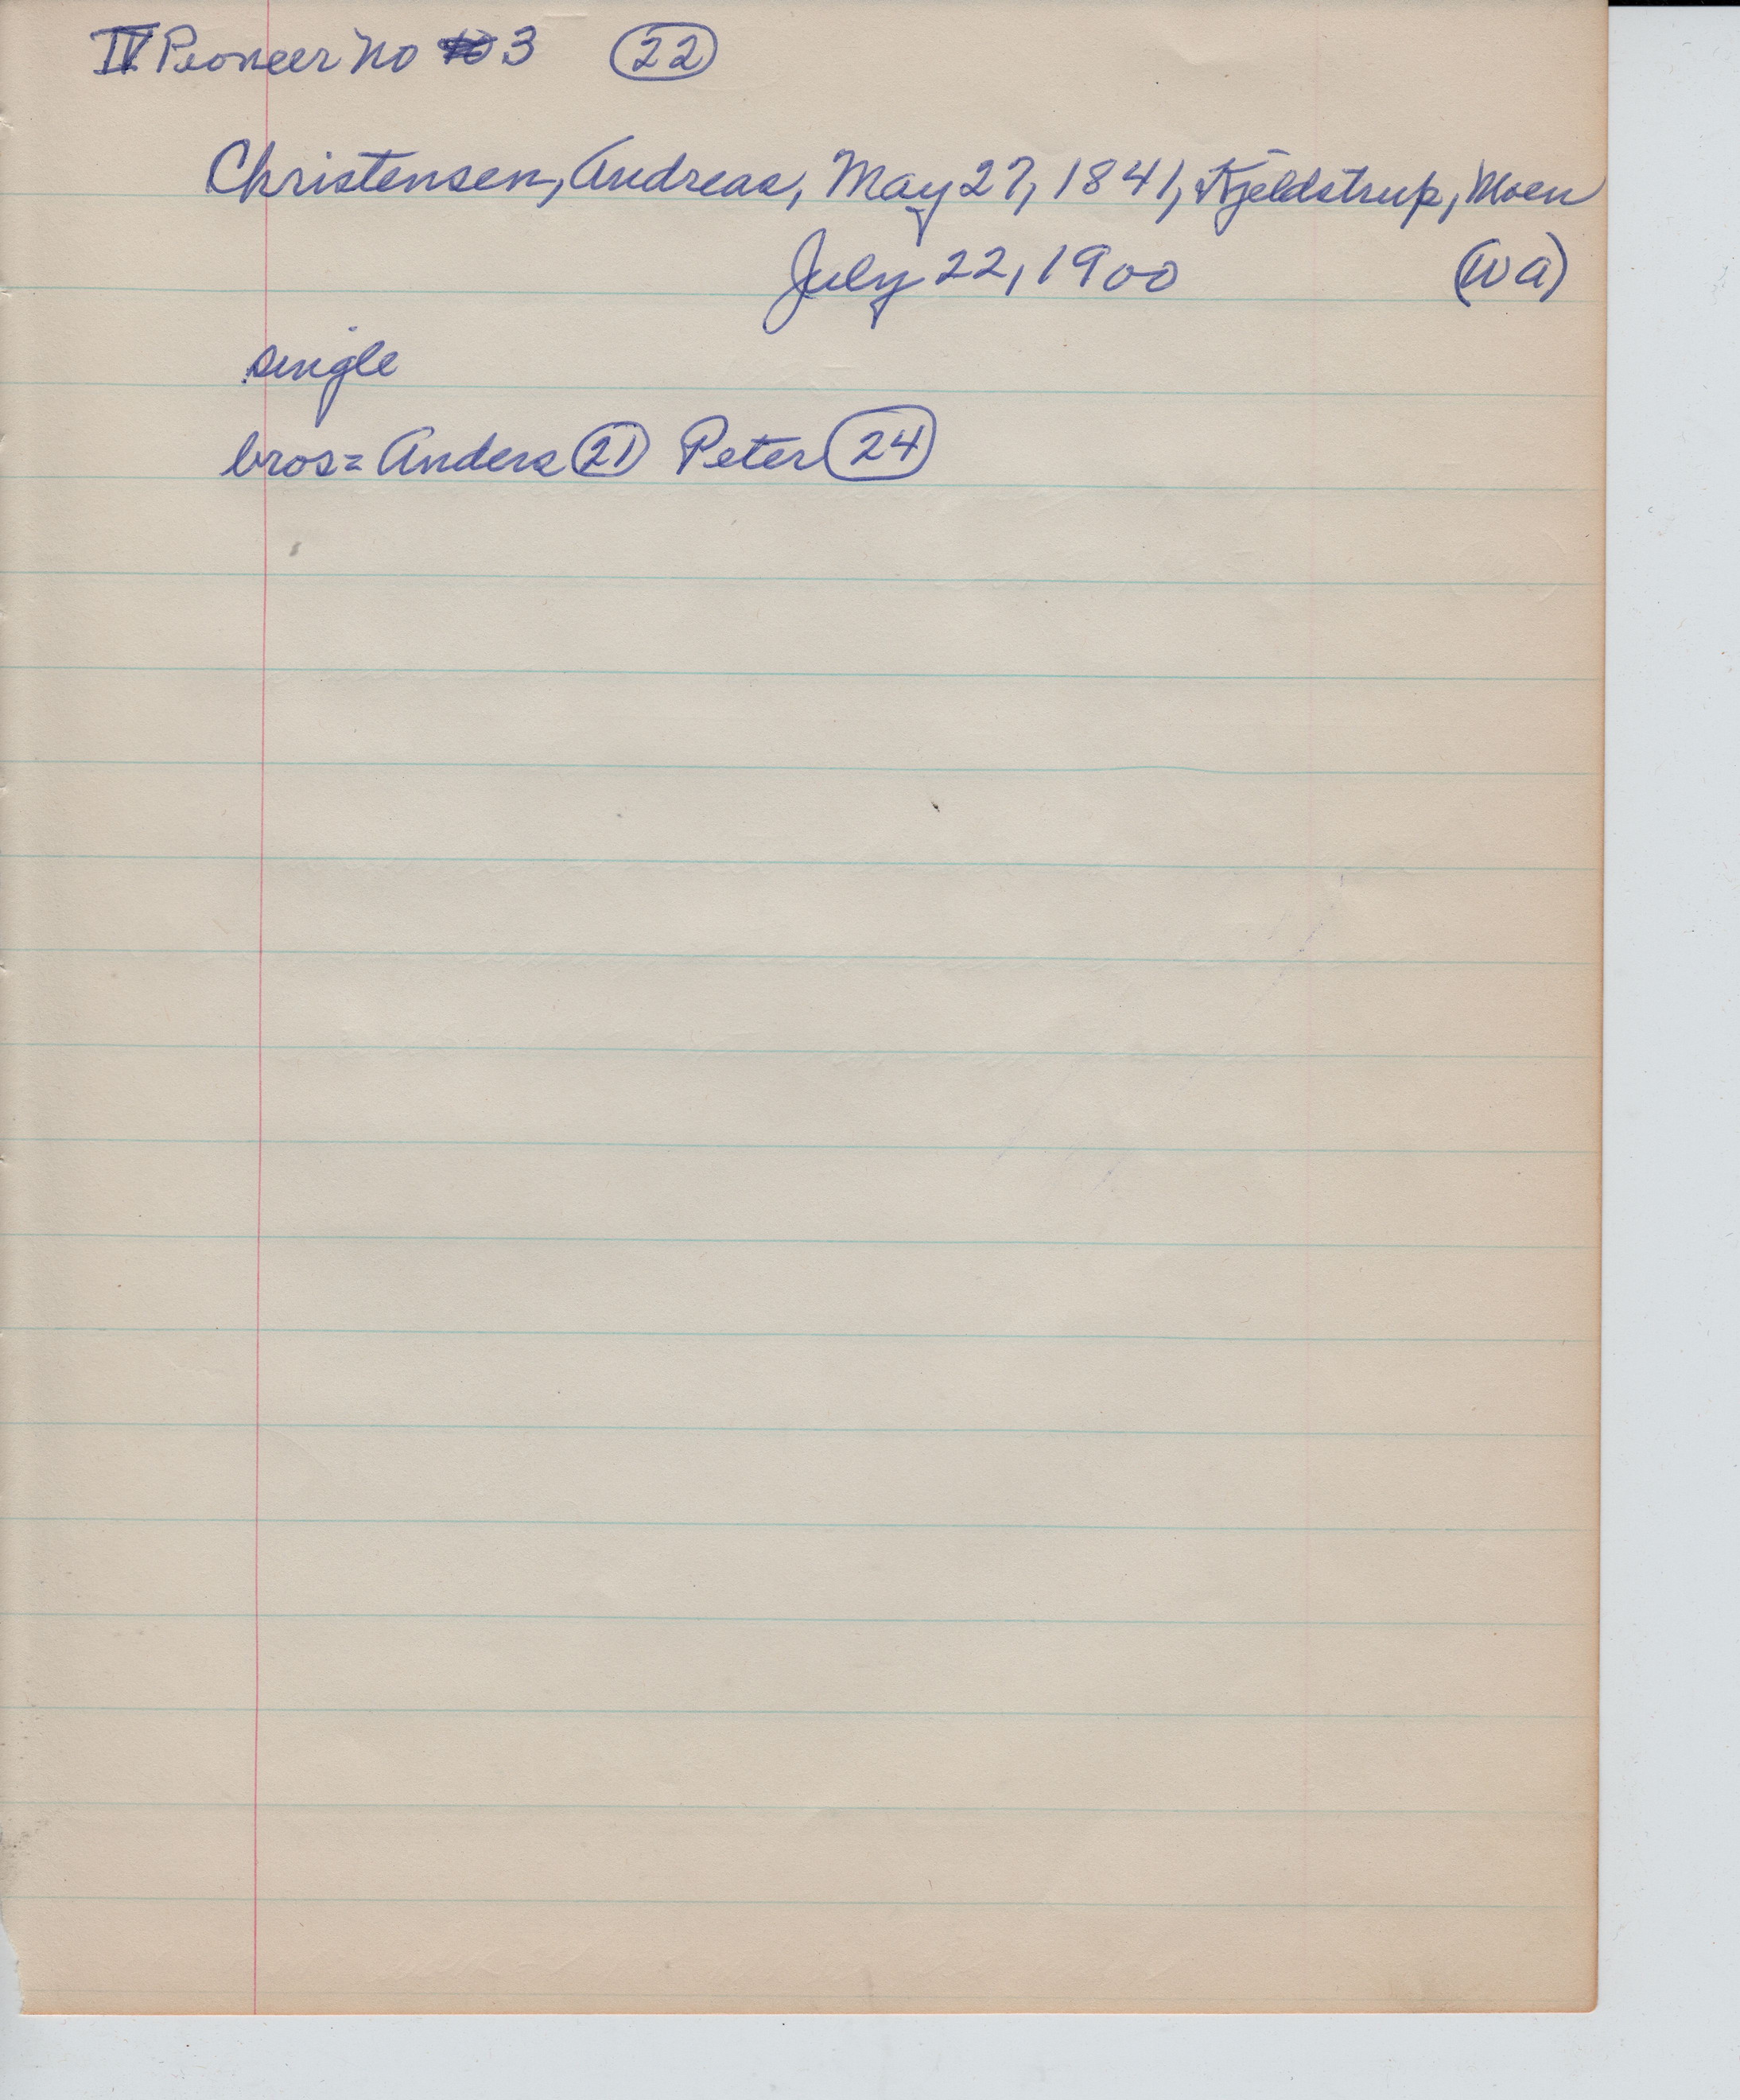 IV Pioneer No 3 22
Christensen, Andreas, May 27, 1841, Kjeldstrup, Moen
July 22, 1900 (Wa)
single
bros = Anders 21 Peter 24